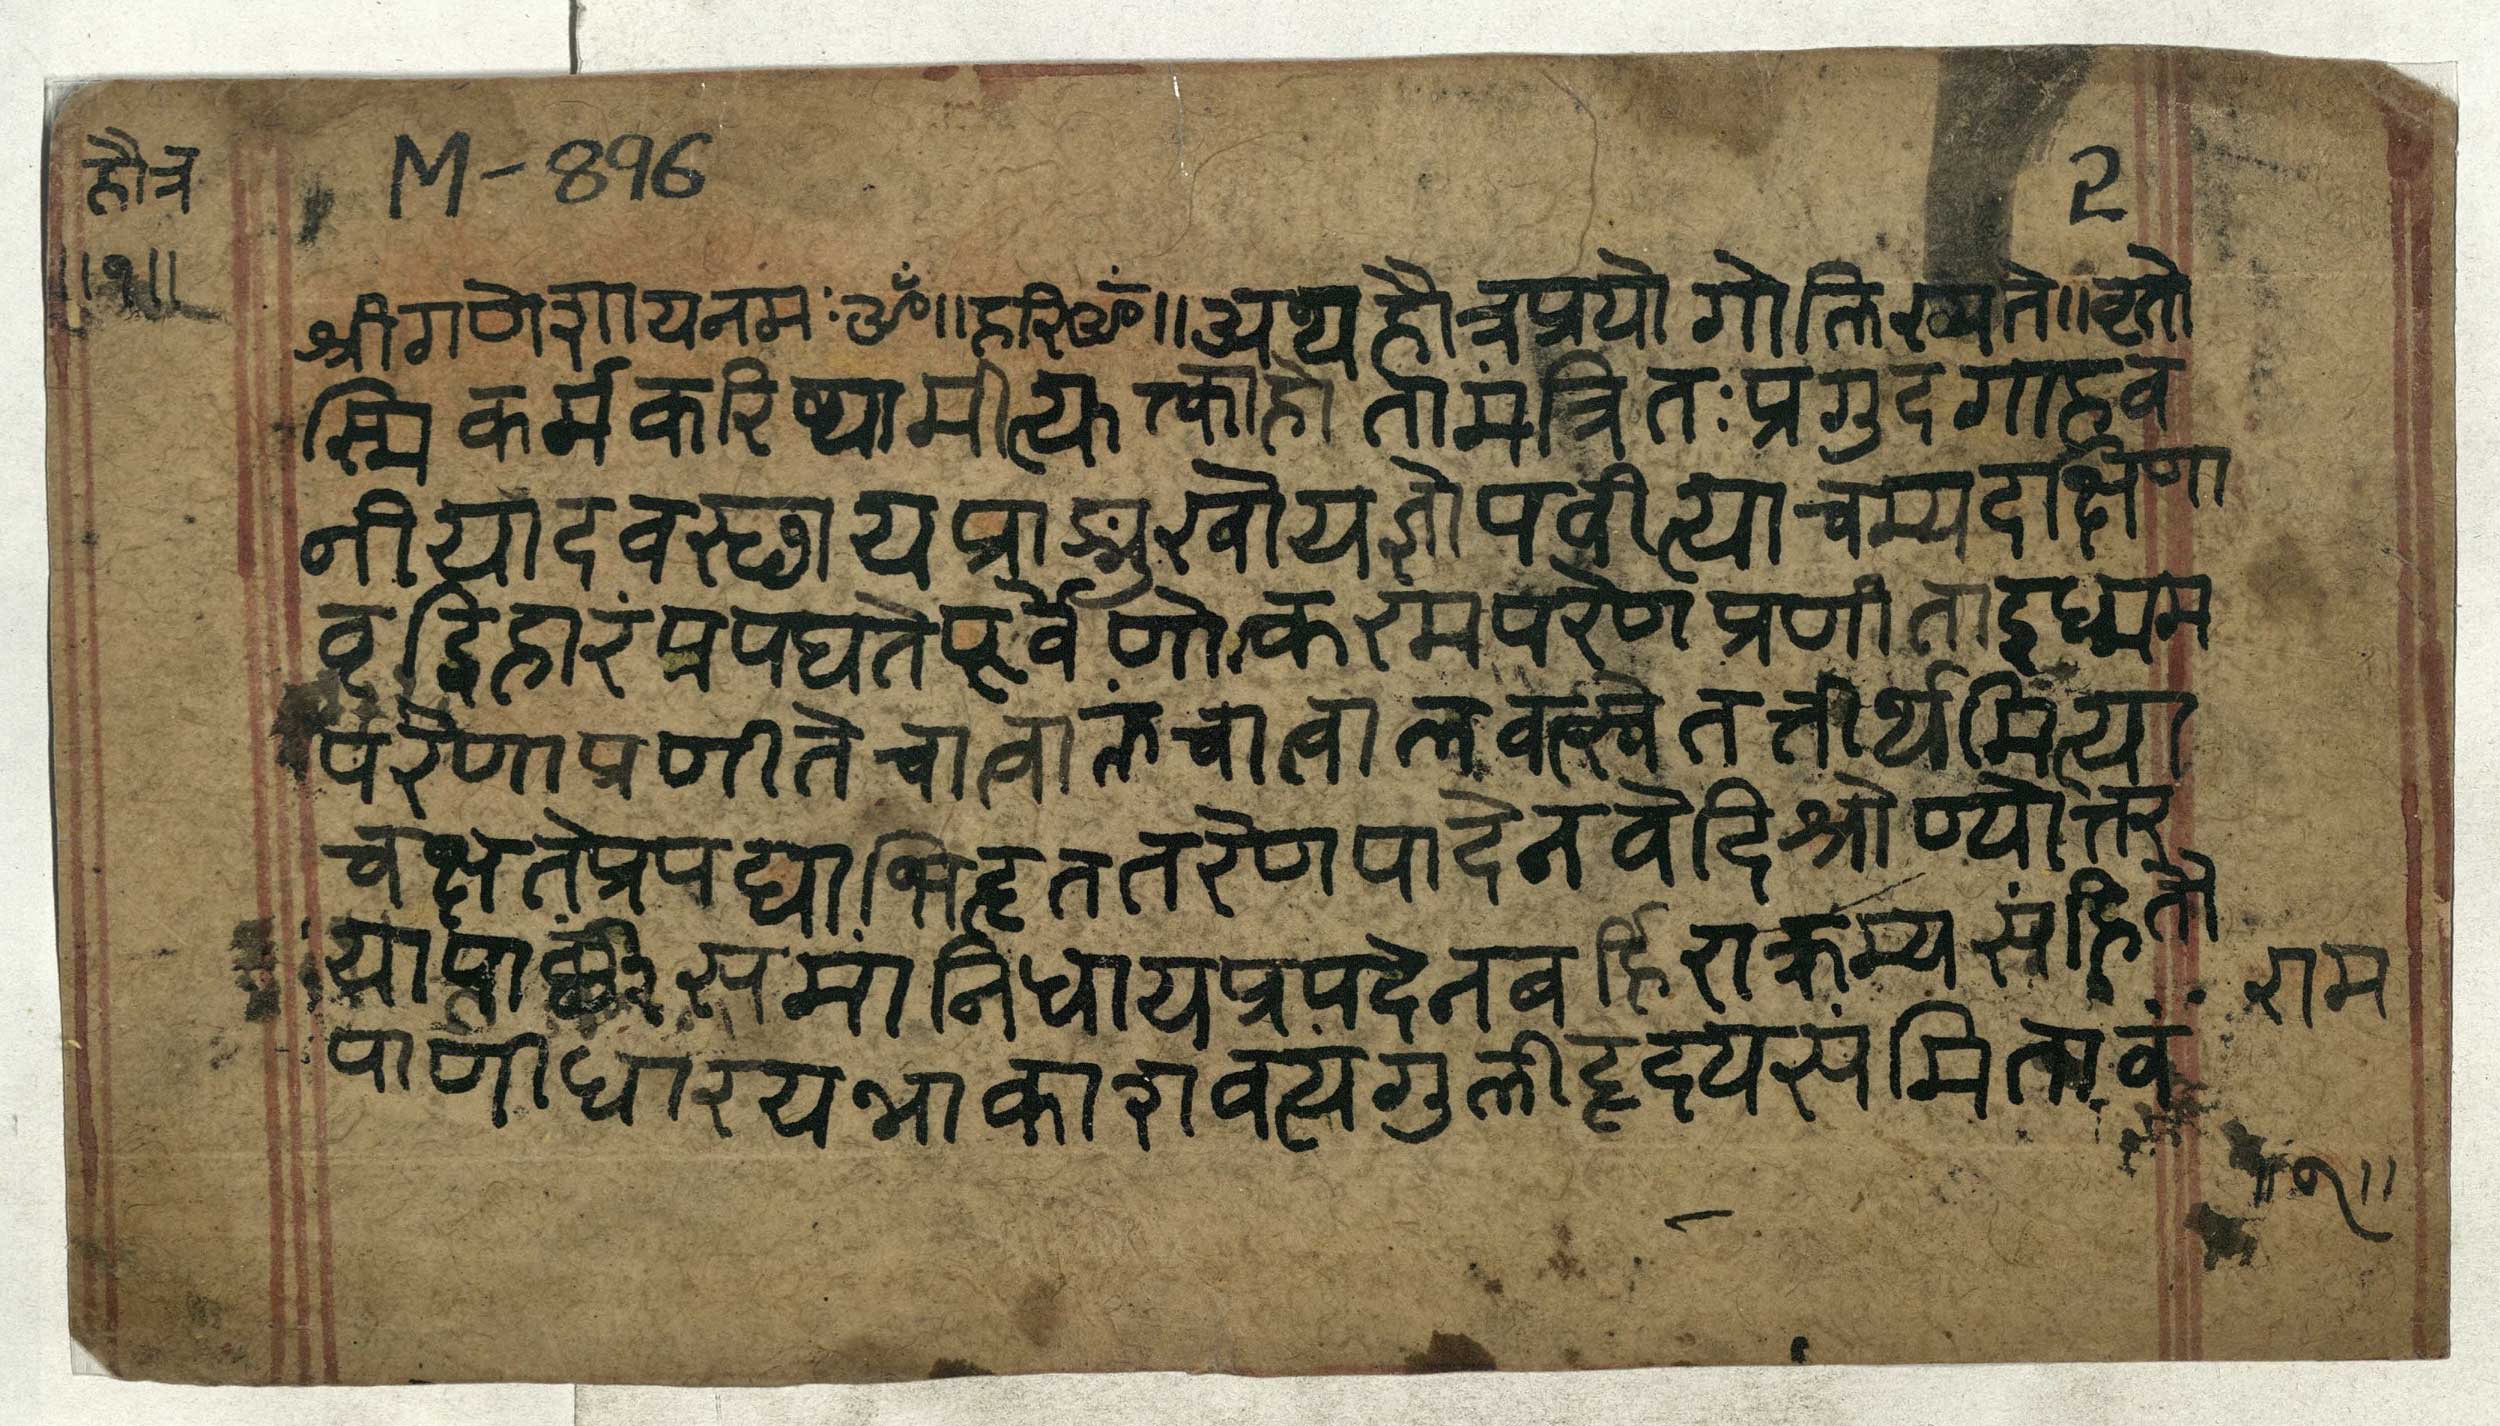 हौत्र
M-896
२
॥१॥
श्रीगणेशायनमःॐ॥हरिॐ॥अथहौत्रप्रयोगोलिख्यते॥वृतो
स्मि कर्मकरिष्यामीत्युक्त्काहोतामंत्रितःप्रगुदगाहव
नीयादवस्छायप्राङ्मुखोयज्ञोपवीत्याचम्यदक्षिणा
वृद्विहारंप्रपद्यतेपूर्वेणोत्करमपरेणप्रणीताइध्मम
परेणाप्रणीतेचात्वालंचात्वालवत्स्वेतत्तीर्थमित्या
चक्षतेप्रपद्याभिहृततरेणपादेनवेदिश्रोण्योत्तर
यापार्ष्णीसमांनिधायप्रपदेनबर्हिराक्रम्यसंहितौ
राम
पाणीधारयन्नाकाशवत्यंगुलीहृदयसंमितावं
॥१॥